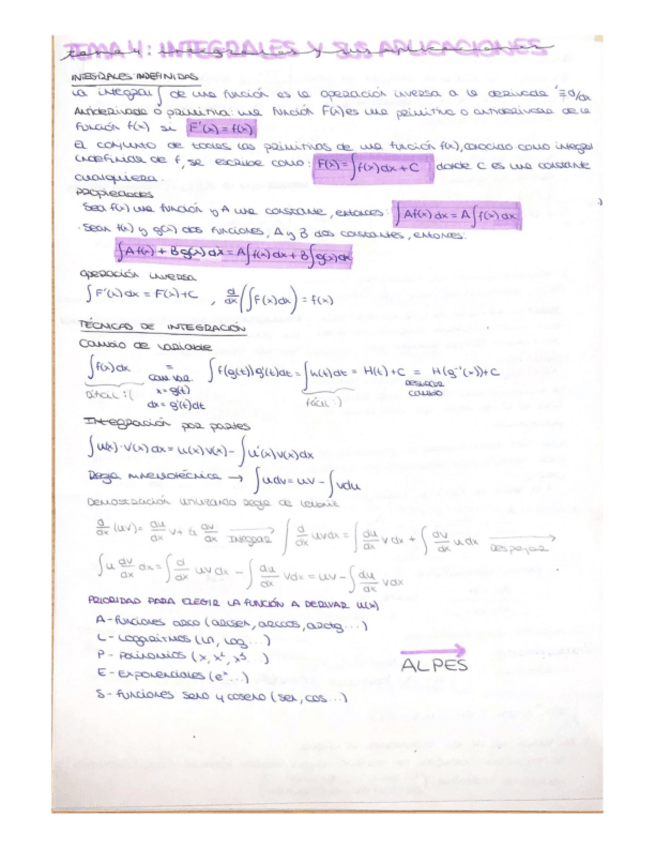 TEMA 4: INTEGRALES Y SUS APLICACIONES
INTEGRALES INDEFINIDAS
La integral ∫ de una función es la operación inversa a la derivada d/dx
Antiderivada o primitiva: una función F(x) es una primitiva o antiderivada de la
función f(x) si F'(x) = f(x)
El conjunto de todas las primitivas de una función f(x), conocido como integral
indefinida de f, se escribe como: F(x) = ∫f(x)dx + C donde C es una constante
cualquiera.
PROPIEDADES
Sea f(x) una función y A una constante, entonces: ∫Af(x)dx = A∫f(x)dx
· Sean f(x) y g(x) dos funciones, A y B dos constantes, entonces:
∫Af(x) + Bg(x) dx = A∫f(x)dx + B∫g(x)dx
operación inversa
∫F'(x)dx = F(x)+C , d/dx (∫f(x)dx) = f(x)
TÉCNICAS DE INTEGRACIÓN
Cambio de variable
∫f(x)dx = ∫f(g(t))g'(t)dt = ∫h(t)dt = H(t)+C = H(g⁻¹(x))+C
CAM VAR. DESHACER
DIFÍCIL :( x = g(t) fácil :) CAMBIO
dx = g'(t)dt
Integración por partes
∫u(x)·v'(x)dx = u(x)v(x) - ∫u'(x)v(x)dx
Regla mnemotécnica → ∫udv = uv - ∫vdu
Demostración utilizando regla de Leibniz
d/dx (uv) = du/dx v + u dv/dx INTEGRAR→ ∫ d/dx uvdx = ∫ du/dx v dx + ∫ dv/dx u dx DESPEJAR→
∫u dv/dx dx = ∫ d/dx uv dx - ∫ du/dx vdx = uv - ∫ du/dx vdx
PRIORIDAD PARA ELEGIR LA FUNCIÓN A DERIVAR u(x)
A - funciones arco (arcsen, arccos, arctg...)
L - Logaritmos (Ln, Log...)
P - Polinomios (x, x², x³...)
E - Exponenciales (eˣ...)
S - funciones seno y coseno (sen, cos...)
ALPES